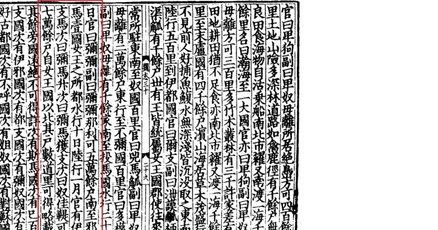 官曰卑狗副曰卑奴毋離所居絶島方可四百餘
里土地山險多深林道路如禽鹿徑有千餘戶無
良田食海物自活乗船南北市糴又南渡一海千
餘里名曰瀚海至一大國官亦曰卑狗副曰卑奴
毋離方可三百里多竹木叢林有三千許家差有
田地耕田猶不足食亦南北市糴又渡一海千餘
里至末盧國有四千餘戶濱山海居草木茂盛行
不見前人好捕魚鰒水無深淺皆沈没取之東南
陸行五百里到伊都國官曰爾支副曰泄謨觚柄
渠觚有千餘戶世有王皆統屬女王國郡使往來
常所駐東南至奴國百里官曰兕馬觚副曰卑奴
毋離有二萬餘戶東行至不彌國百里官曰多模
副曰卑奴毋離有千餘家南至投馬國水行二十
日官曰彌彌副曰彌彌那利可五萬餘戶南至邪
馬壹國女王之所都水行十日陸行一月官有伊
支馬次曰彌馬升次曰彌馬獲支次曰奴佳鞮可
七萬餘戶自女王國以北其戶數道里可得略載
其餘旁國遠絶不可得詳次有斯馬國次有已百
支國次有伊邪國次有都支國次有彌奴國次有
好古都國次有不呼國次有姐奴國次有對蘇國